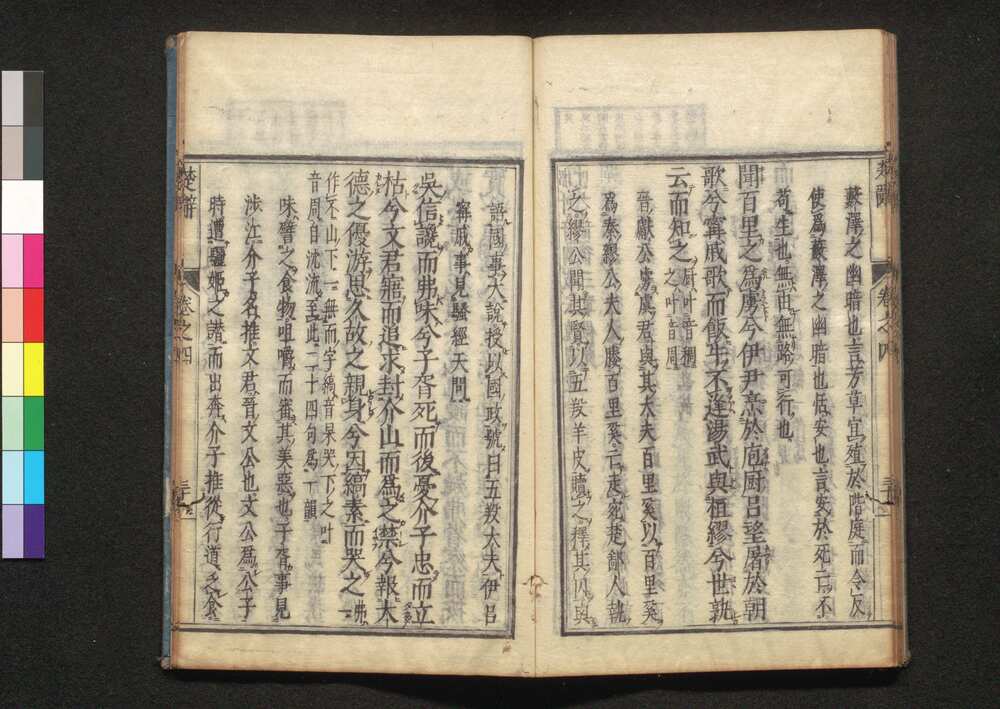 楚辭
卷之四
三十一
藪澤之幽暗也言芳草宜殖於階庭而今反
使爲藪澤之幽暗也恬安也言安於死亡不
苟生也無由無路可行也
聞百里之爲虜兮伊尹烹於庖厨呂望屠於朝
歌兮甯戚歌而飯牛不逢湯武與桓繆兮世孰
云而知之厨叶音稠
之叶音周
晉獻公虜虞君與其大夫百里奚以百里奚
爲秦繆公夫人媵百里奚亡走宛楚鄙人執
之繆公聞其賢以五羖羊皮贖之釋其囚與
語國事大說授以國政號曰五羖大夫伊呂
甯戚事見騷經天問
吳信讒而弗味兮子胥死而後憂介子忠而立
枯兮文君寤而追求封介山而爲之禁兮報大
德之優游思久故之親身兮因縞素而哭之弗一
作不山下一無而字縞音杲哭下之叶
音周自沈流至此二十四句爲一韻
味譬之食物咀嚼而審其美惡也子胥事見
涉江介子名推文君晉文公也文公爲公子
時遭驪姬之譖而出奔介子推從行道乏食
楚辭
卷之四